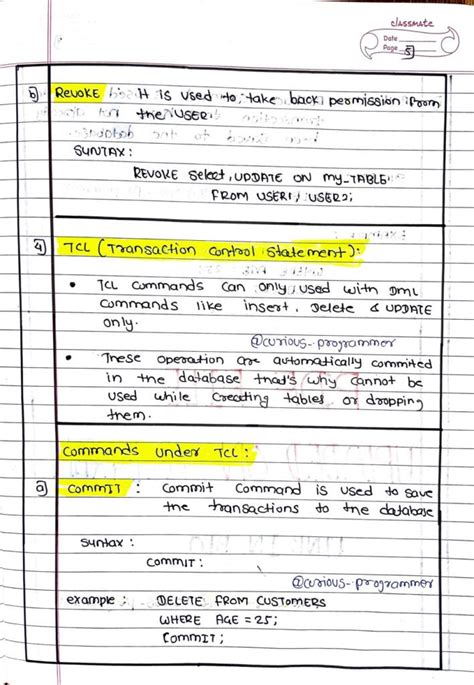 classmate
Date
Page 5
b) REVOKE : It is used to take back permission from
the USER
SYNTAX :
REVOKE Select, UPDATE ON MY_TABLE
FROM USER1, USER2;
4) TCL (Transaction Control Statement):
• TCL commands can only used with DML
Commands like insert, Delete & UPDATE
only.
@curious-.programmer
• These operation are automatically commited
in the database that's why cannot be
used while Creating tables or dropping
them.
Commands Under TCL :
a) COMMIT : Commit Command is used to save
the transactions to the database
Syntax :
COMMIT :
@curious-.programmer
example : DELETE FROM CUSTOMERS
WHERE AGE = 25;
COMMIT;